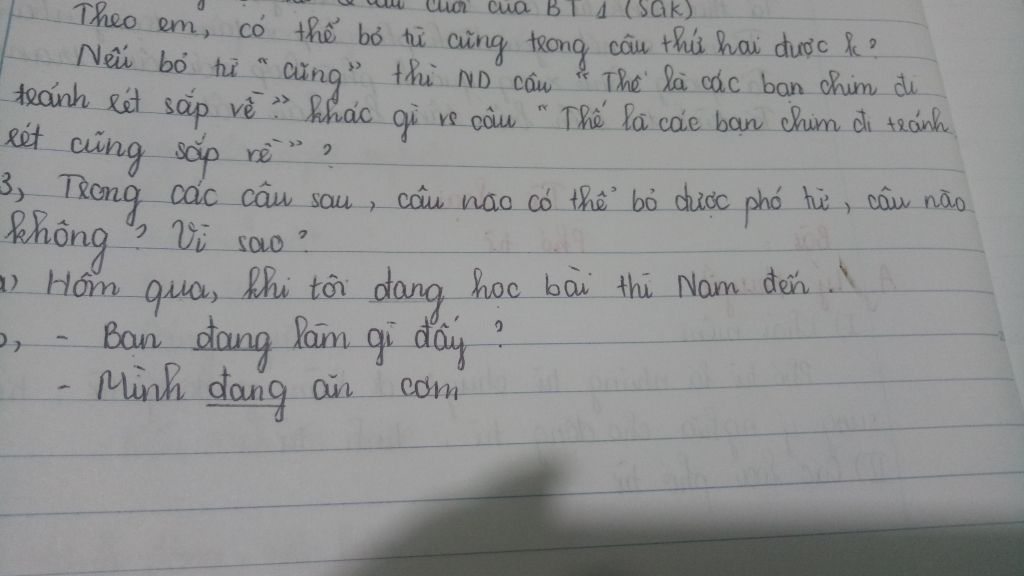 câu cuối của BT 1 (SGK)
Theo em, có thể bỏ từ cũng trong câu thứ hai được k?
Nếu bỏ từ "cũng" thì ND câu "Thế là các bạn chim đi
tránh rét sắp về". Khác gì vs câu "Thế là các bạn chim đi tránh
rét cũng sắp về"?
3, Trong các câu sau, câu nào có thể bỏ được phó từ, câu nào
không? Vì sao?
a) Hôm qua, khi tôi đang học bài thì Nam đến.
b, - Bạn đang làm gì đấy?
- Mình đang ăn cơm